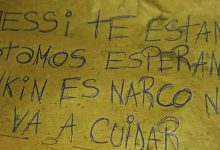 MESSI TE ESTAM
STAMOS ESPERAN
VKIN ES NARCO N
VA A CUIDAR